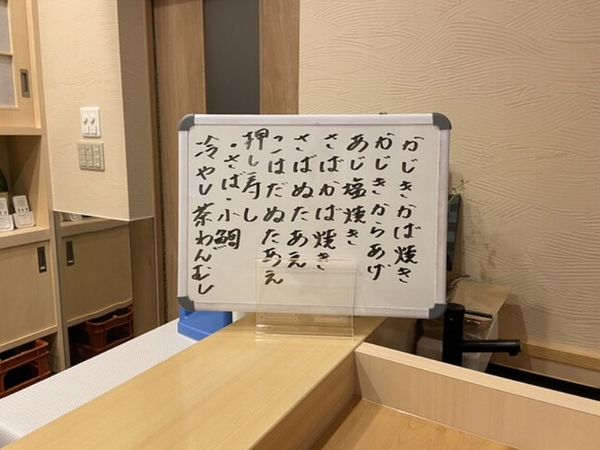 かじきかば焼き
かじきからあげ
あじ塩焼き
さばかば焼き
さばぬたあえ
こはだぬたあえ
押し寿し
・さば・小鯛
冷やし茶わんむし